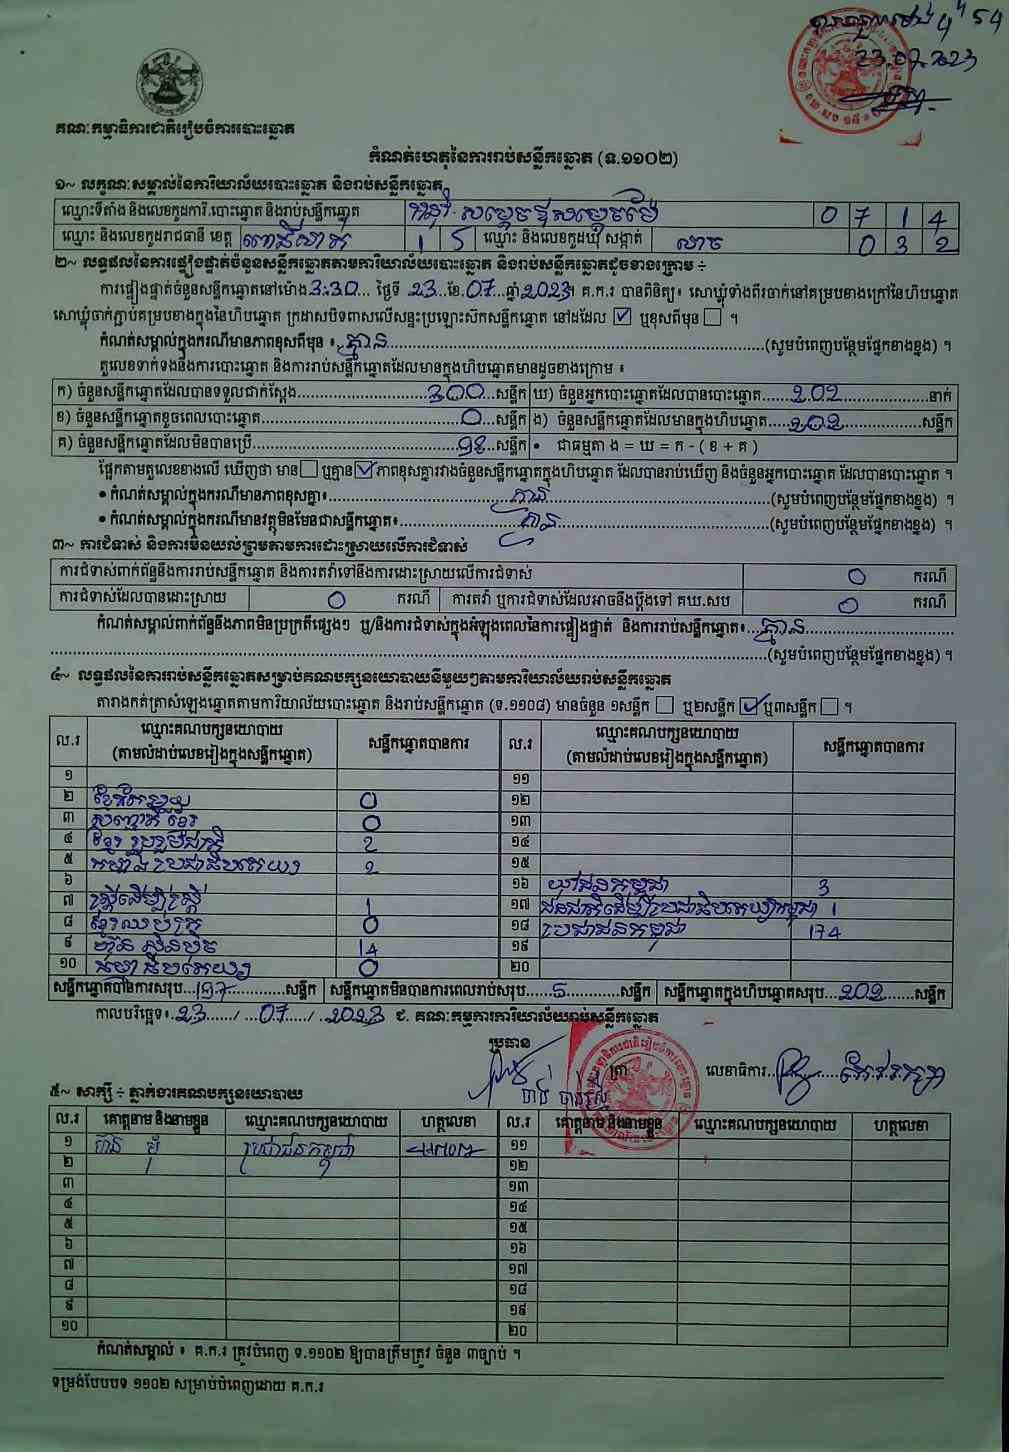 23.07.2023
គណៈកម្មាធិការជាតិរៀបចំការបោះឆ្នោត
កំណត់ហេតុនៃការរាប់សន្លឹកឆ្នោត (ទ.១១០២)
១~ លក្ខណៈសម្គាល់នៃការិយាល័យបោះឆ្នោត និងរាប់សន្លឹកឆ្នោត
ឈ្មោះទីតាំង និងលេខកូដការិ.បោះឆ្នោត និងរាប់សន្លឹកឆ្នោត 0 7 1 4
ឈ្មោះ និងលេខកូដរាជធានី ខេត្ត ពោធិ៍សាត់ 1 5 ឈ្មោះ និងលេខកូដឃុំ សង្កាត់ 0 3 2
២~ លទ្ធផលនៃការផ្ទៀងផ្ទាត់ចំនួនសន្លឹកឆ្នោតតាមការិយាល័យបោះឆ្នោត និងរាប់សន្លឹកឆ្នោតដូចខាងក្រោម ÷
ការផ្ទៀងផ្ទាត់ចំនួនសន្លឹកឆ្នោតនៅម៉ោង 3:30... ថ្ងៃទី 23 ខែ 07 ឆ្នាំ 2023។ គ.ក.រ បានពិនិត្យ៖ សោឃ្លុំទាំងពីរចាក់នៅគម្របខាងក្រៅនៃហិបឆ្នោត
សោឃ្លុំចាក់ភ្ជាប់គម្របខាងក្នុងនៃហិបឆ្នោត ក្រដាសបិទពាសលើសន្ទះប្រឡោះស៊កសន្លឹកឆ្នោត នៅដដែល ☑ ឬខុសពីមុន ☐ ។
កំណត់សម្គាល់ក្នុងករណីមានភាពខុសពីមុន ៖ គ្មាន (សូមបំពេញបន្ថែមផ្នែកខាងខ្នង) ។
តួលេខទាក់ទងនឹងការបោះឆ្នោត និងការរាប់សន្លឹកឆ្នោតដែលមានក្នុងហិបឆ្នោតមានដូចខាងក្រោម ៖
ក) ចំនួនសន្លឹកឆ្នោតដែលបានទទួលជាក់ស្ដែង 300 សន្លឹក ឃ) ចំនួនអ្នកបោះឆ្នោតដែលបានបោះឆ្នោត 202 នាក់
ខ) ចំនួនសន្លឹកឆ្នោតខូចពេលបោះឆ្នោត 0 សន្លឹក ង) ចំនួនសន្លឹកឆ្នោតដែលមានក្នុងហិបឆ្នោត 202 សន្លឹក
គ) ចំនួនសន្លឹកឆ្នោតដែលមិនបានប្រើ 98 សន្លឹក • ជាធម្មតា ង = ឃ = ក - ( ខ + គ )
ផ្អែកតាមតួលេខខាងលើ ឃើញថា មាន ☐ ឬគ្មាន ☑ ភាពខុសគ្នារវាងចំនួនសន្លឹកឆ្នោតក្នុងហិបឆ្នោត ដែលបានរាប់ឃើញ និងចំនួនអ្នកបោះឆ្នោត ដែលបានបោះឆ្នោត ។
• កំណត់សម្គាល់ក្នុងករណីមានភាពខុសគ្នា៖ គ្មាន (សូមបំពេញបន្ថែមផ្នែកខាងខ្នង) ។
• កំណត់សម្គាល់ក្នុងករណីមានវត្ថុមិនមែនជាសន្លឹកឆ្នោត៖ គ្មាន (សូមបំពេញបន្ថែមផ្នែកខាងខ្នង) ។
៣~ ការជំទាស់ និងការមិនយល់ព្រមតាមការដោះស្រាយលើការជំទាស់
ការជំទាស់ពាក់ព័ន្ធនឹងការរាប់សន្លឹកឆ្នោត និងការតវ៉ាទៅនឹងការដោះស្រាយលើការជំទាស់ 0 ករណី
ការជំទាស់ដែលបានដោះស្រាយ 0 ករណី ការតវ៉ា ឬការជំទាស់ដែលអាចនឹងប្ដឹងទៅ គឃ.សប 0 ករណី
កំណត់សម្គាល់ពាក់ព័ន្ធនឹងភាពមិនប្រក្រតីផ្សេងៗ ឬ/និងការជំទាស់ក្នុងអំឡុងពេលនៃការផ្ទៀងផ្ទាត់ និងការរាប់សន្លឹកឆ្នោត៖ គ្មាន
(សូមបំពេញបន្ថែមផ្នែកខាងខ្នង) ។
៤~ លទ្ធផលនៃការរាប់សន្លឹកឆ្នោតសម្រាប់គណបក្សនយោបាយនីមួយៗតាមការិយាល័យរាប់សន្លឹកឆ្នោត
តារាងកត់ត្រាសំឡេងឆ្នោតតាមការិយាល័យបោះឆ្នោត និងរាប់សន្លឹកឆ្នោត (ទ.១១០៨) មានចំនួន ១សន្លឹក ☐ ឬ២សន្លឹក ☑ ឬ៣សន្លឹក ☐ ។
ល.រ ឈ្មោះគណបក្សនយោបាយ (តាមលំដាប់លេខរៀងក្នុងសន្លឹកឆ្នោត) សន្លឹកឆ្នោតបានការ ល.រ ឈ្មោះគណបក្សនយោបាយ (តាមលំដាប់លេខរៀងក្នុងសន្លឹកឆ្នោត) សន្លឹកឆ្នោតបានការ
១ ១១
២ 0 ១២
៣ 0 ១៣
៤ ខ្មែររួបរួមជាតិ 2 ១៤
៥ 2 ១៥
៦ ១៦ យុវជនកម្ពុជា 3
៧ ស្ត្រីដើម្បីស្ត្រី 1 ១៧ 1
៨ ខ្មែរឈប់ក្រ 0 ១៨ ប្រជាជនកម្ពុជា 174
៩ ហ៊្វុនស៊ិនប៉ិច 14 ១៩
១០ ធម្មាធិបតេយ្យ 0 ២០
សន្លឹកឆ្នោតបានការសរុប 197 សន្លឹក សន្លឹកឆ្នោតមិនបានការពេលរាប់សរុប 5 សន្លឹក សន្លឹកឆ្នោតក្នុងហិបឆ្នោតសរុប 202 សន្លឹក
កាលបរិច្ឆេទ៖ 23 / 07 / 2023 ជ. គណៈកម្មការការិយាល័យរាប់សន្លឹកឆ្នោត
ប្រធាន
ត្រា លេខាធិការ
៥~ សាក្សី ÷ ភ្នាក់ងារគណបក្សនយោបាយ
ល.រ គោត្តនាម និងនាមខ្លួន ឈ្មោះគណបក្សនយោបាយ ហត្ថលេខា ល.រ គោត្តនាម និងនាមខ្លួន ឈ្មោះគណបក្សនយោបាយ ហត្ថលេខា
១ ប្រជាជនកម្ពុជា ១១
២ ១២
៣ ១៣
៤ ១៤
៥ ១៥
៦ ១៦
៧ ១៧
៨ ១៨
៩ ១៩
១០ ២០
កំណត់សម្គាល់ ៖ គ.ក.រ ត្រូវបំពេញ ទ.១១០២ ឱ្យបានត្រឹមត្រូវ ចំនួន ៣ច្បាប់ ។
ទម្រង់បែបបទ ១១០២ សម្រាប់បំពេញដោយ គ.ក.រ